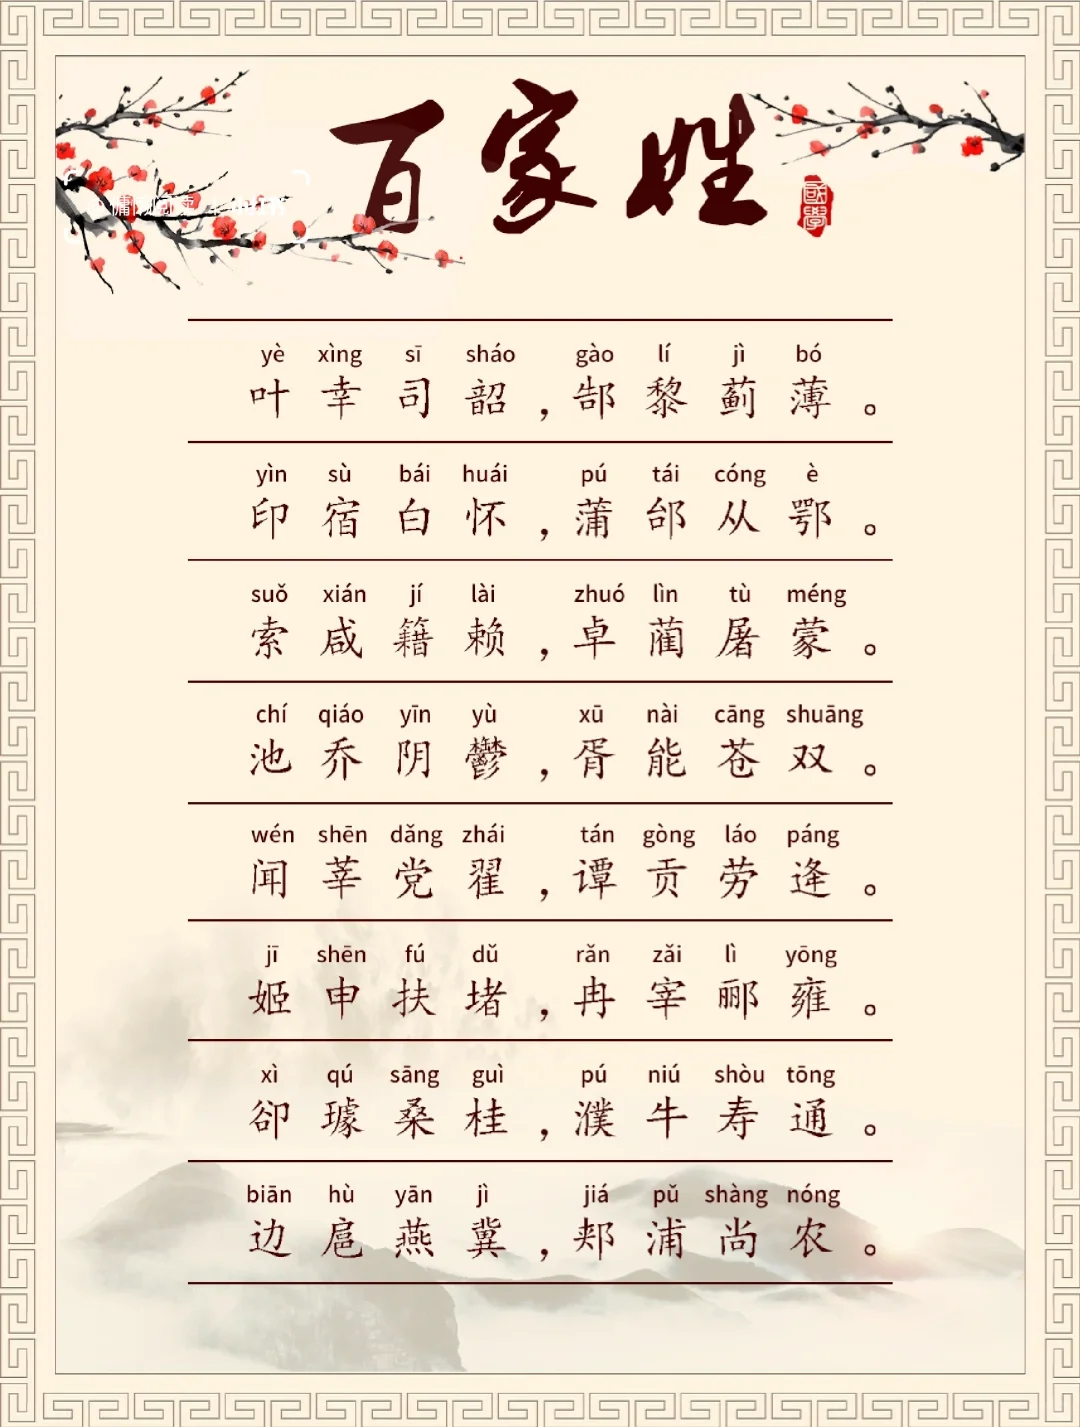 百家姓
國學
yè xìng sī sháo gào lí jì bó
叶幸司韶，郜黎蓟薄。
yìn sù bái huái pú tái cóng è
印宿白怀，蒲邰从鄂。
suǒ xián jí lài zhuó lìn tù méng
索咸籍赖，卓蔺屠蒙。
chí qiáo yīn yù xū nài cāng shuāng
池乔阴鬱，胥能苍双。
wén shēn dǎng zhái tán gòng láo páng
闻莘党翟，谭贡劳逄。
jī shēn fú dǔ rǎn zǎi lì yōng
姬申扶堵，冉宰郦雍。
xì qú sāng guì pú niú shòu tōng
郤璩桑桂，濮牛寿通。
biān hù yān jì jiá pǔ shàng nóng
边扈燕冀，郏浦尚农。